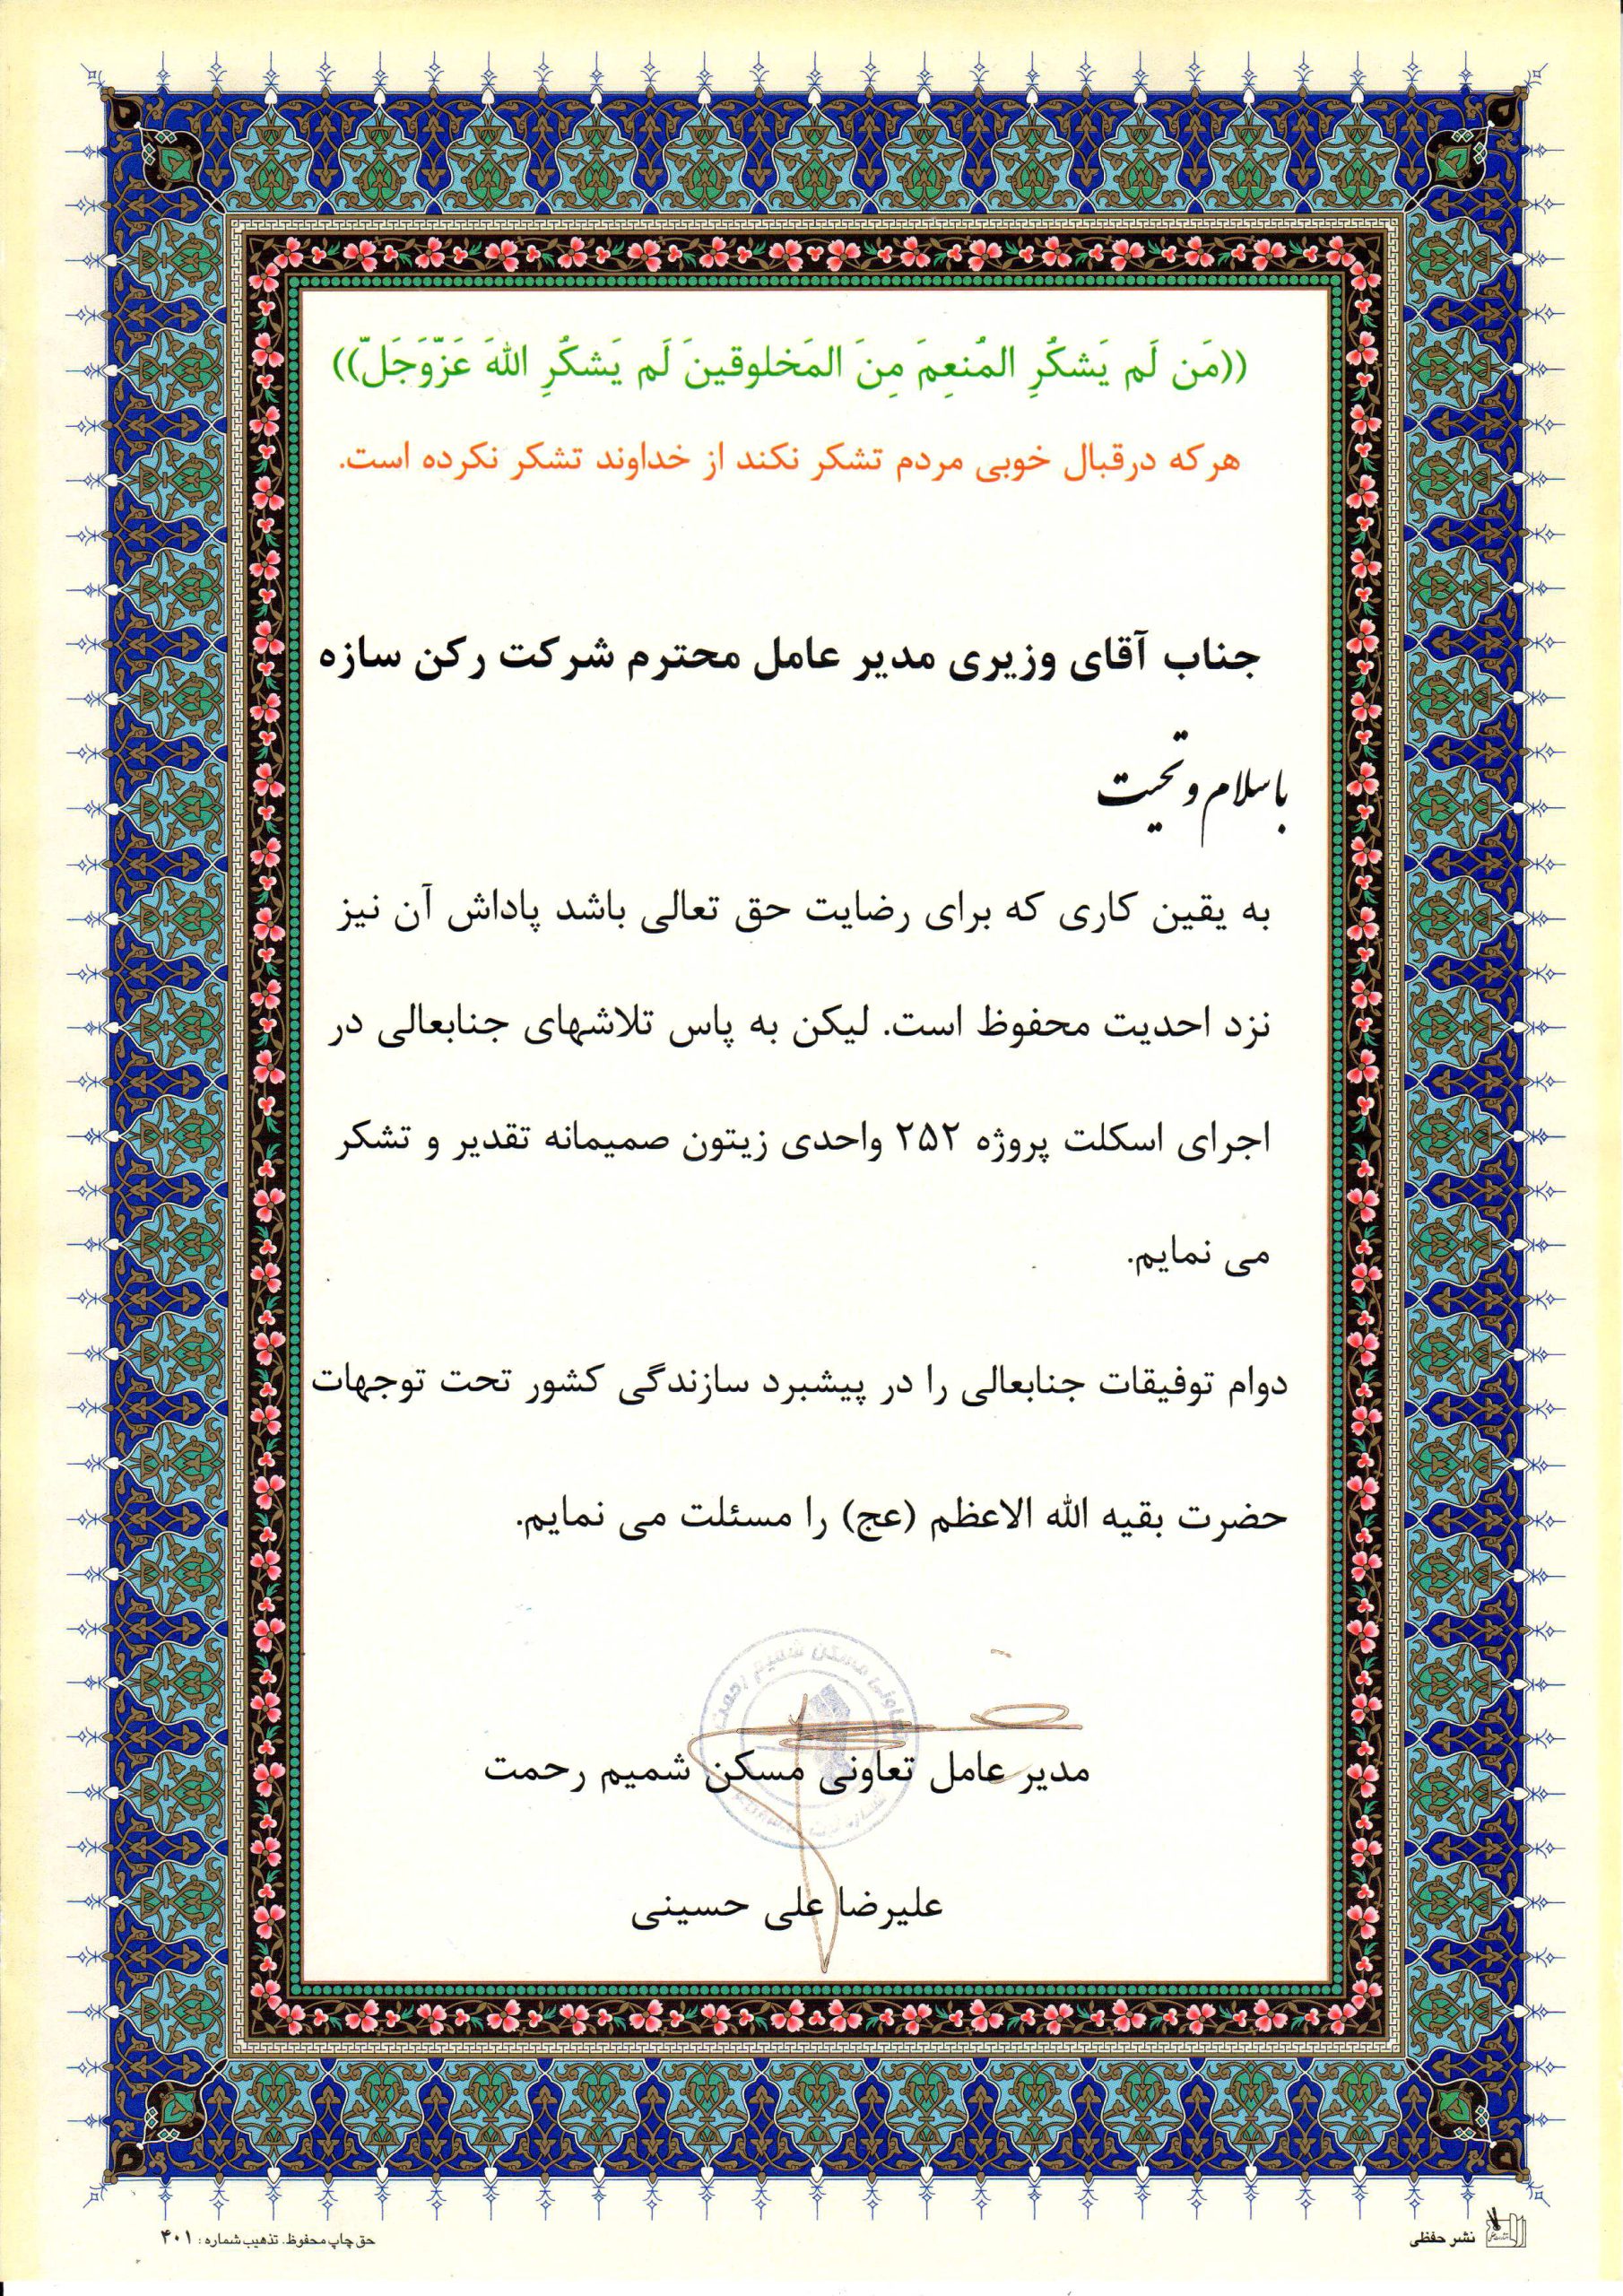 ((مَن لَم یَشکُرِ المُنعِمَ مِنَ المَخلوقینَ لَم یَشکُرِ اللهَ عَزَّوَجَلّ))
هرکه درقبال خوبی مردم تشکر نکند از خداوند تشکر نکرده است.
جناب آقای وزیری مدیر عامل محترم شرکت رکن سازه
باسلام و تحیت
به یقین کاری که برای رضایت حق تعالی باشد پاداش آن نیز
نزد احدیت محفوظ است. لیکن به پاس تلاشهای جنابعالی در
اجرای اسکلت پروژه ۲۵۲ واحدی زیتون صمیمانه تقدیر و تشکر
می نمایم.
دوام توفیقات جنابعالی را در پیشبرد سازندگی کشور تحت توجهات
حضرت بقیه الله الاعظم (عج) را مسئلت می نمایم.
تعاونی مسکن شمیم رحمت
مدیر عامل تعاونی مسکن شمیم رحمت
علیرضا علی حسینی
نشر حفظی
حق چاپ محفوظ. تذهیب شماره : ۴۰۱